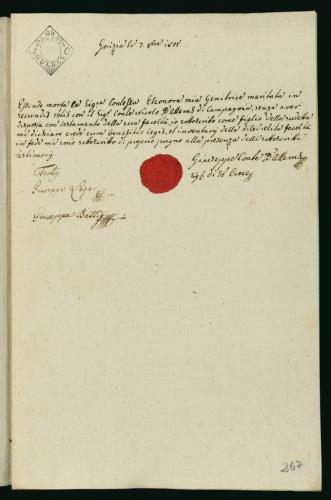 Gorizia li 7. 8bre 1801
Essendo morta la Sigra Contessa Eleonora mia Genitrice maritata in
secundis votis con il Sigr Conte Nicolo D'Attems di Campagna, senza aver
disposto con testamento della sua facoltà, io sottoscritto come figlio della sudetta
mi dichiaro erede cum benefitio legis, et inventary della di lei facoltà
in fede mi sono sottoscritto di proprio pugno alla presenza delli sottoscritti
testimonj
Giuseppe Conte D'Attems
Testj
Giuseppe
Giuseppe
267